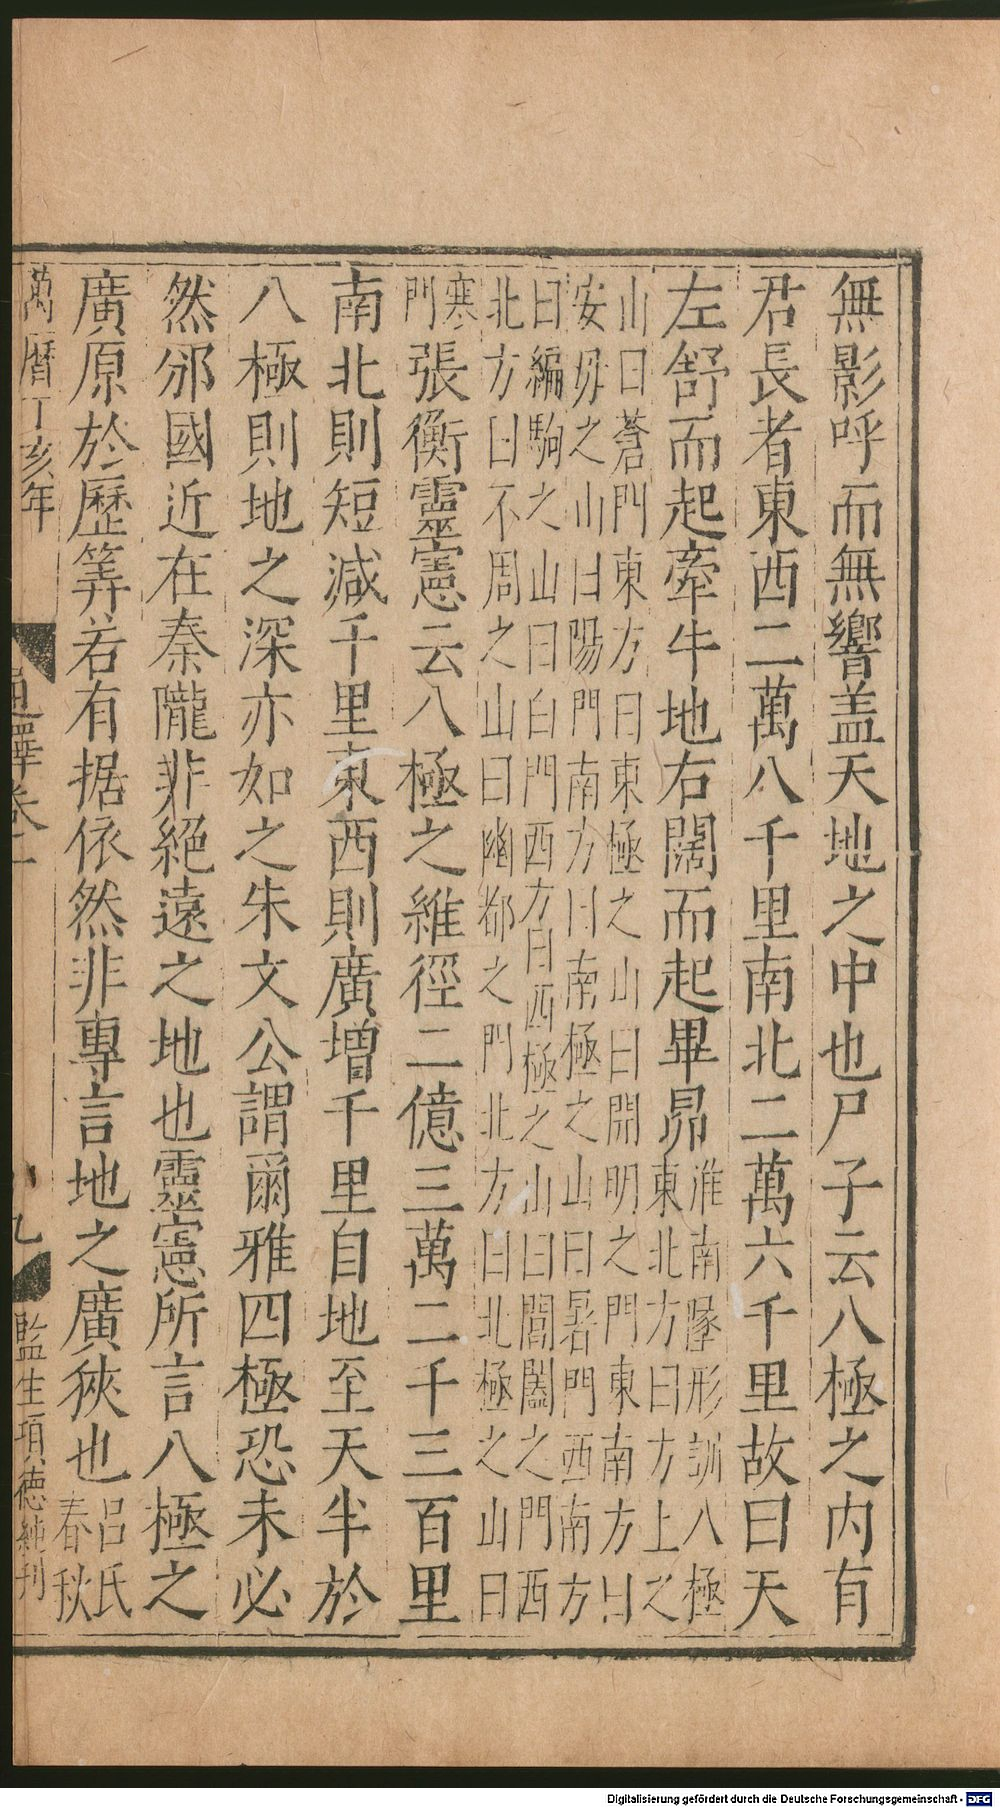 無影呼而無響盖天地之中也尸子云八極之内有
君長者東西二萬八千里南北二萬六千里故曰天
左舒而起牽牛地右闊而起畢昴
淮南墬形訓八極
東北方曰方上之
山曰蒼門東方曰東極之山曰開明之門東南方曰
安毋之山曰陽門南方曰南極之山曰暑門西南方
曰編駒之山曰白門西方曰西極之山曰閶闔之門西
北方曰不周之山曰幽都之門北方曰北極之山曰
寒
門
張衡靈憲云八極之維徑二億三萬二千三百里
南北則短减千里東西則廣增千里自地至天半於
八極則地之深亦如之朱文公謂爾雅四極恐未必
然邠國近在秦隴非絕遠之地也靈憲所言八極之
廣原於歷筭若有据依然非專言地之廣狹也
呂氏
春秋
萬曆丁亥年
通釋卷一
九
監生項德純刊
Digitalisierung gefördert durch die Deutsche Forschungsgemeinschaft - DFG